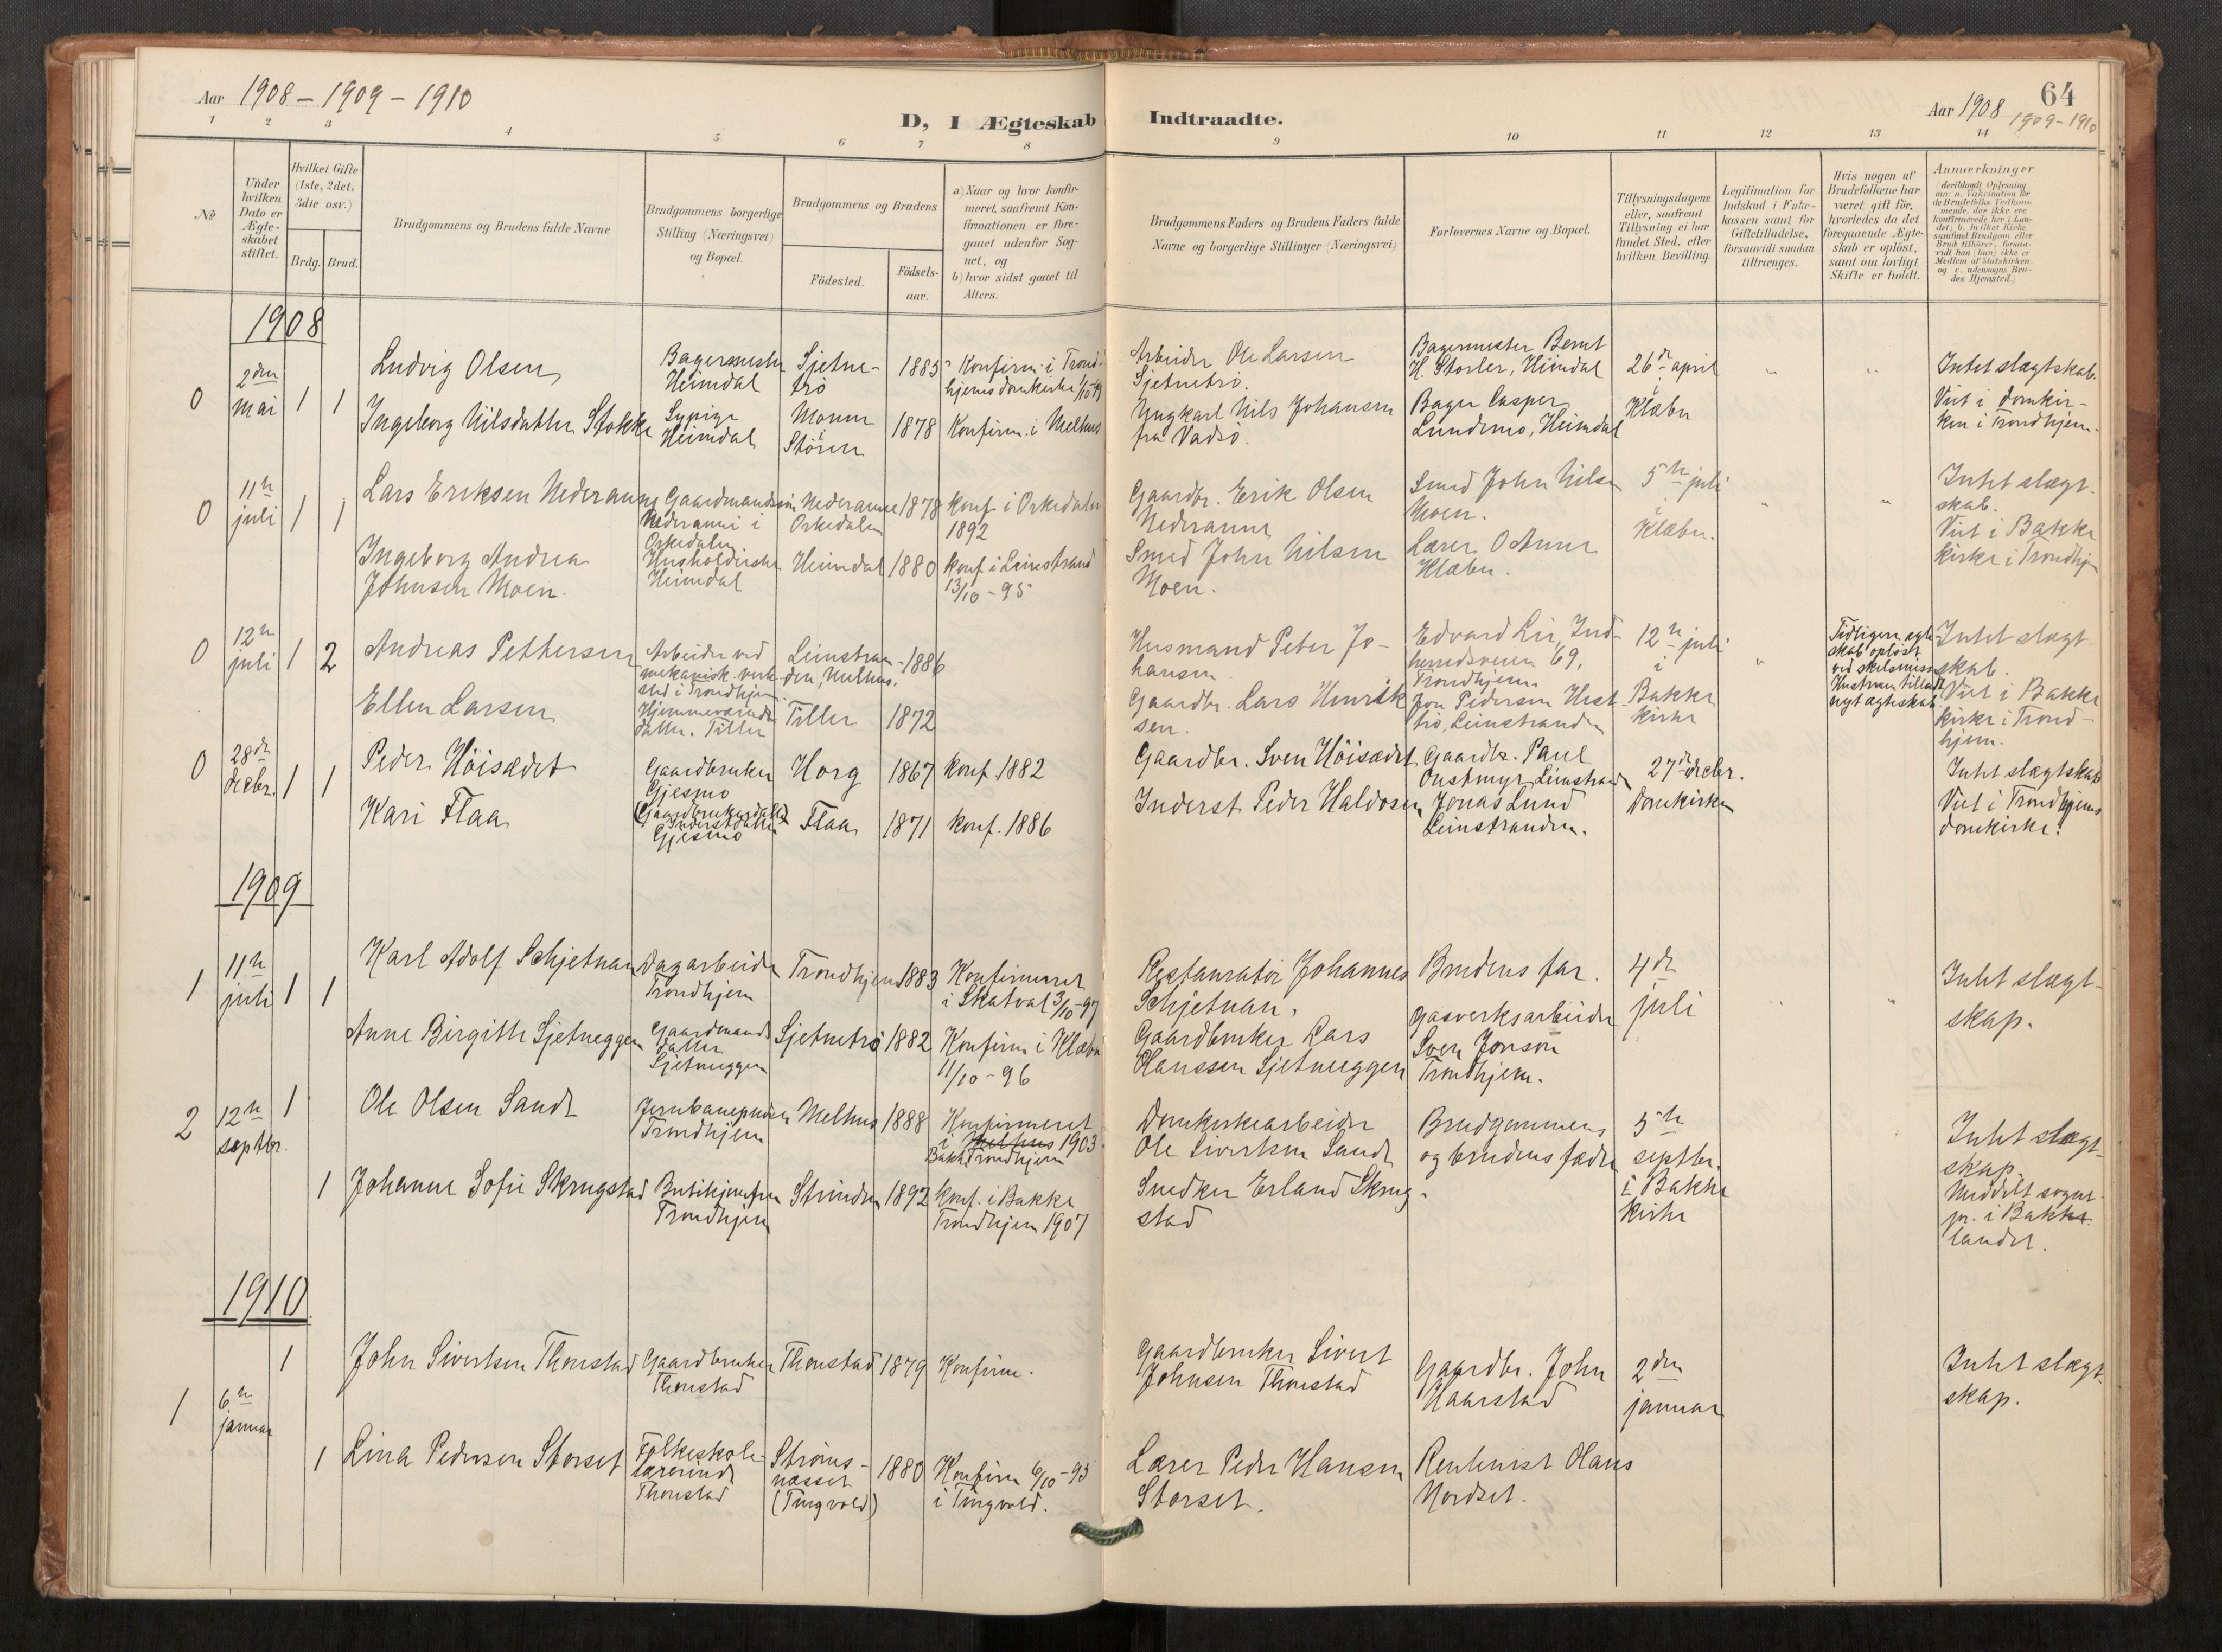 Aar 1908 – 1909 – 1910
D, I Ægteskab
Indtraadte.
Aar 1908
1909–1910
64
1 2 3 4 5 6 7 8 9 10 11 12 13 14
No
Under
hvilken
Dato er
Ægte-
skabet
stiftet.
Hvilket Gifte
(1ste, 2det,
3die osv.)
Brdg. Brud.
Brudgommens og Brudens fulde Navne
Brudgommens borgerlige
Stilling (Næringsvei)
og Bopæl.
Brudgommens og Brudens
Födested.
Födsels-
aar.
a) Naar og hvor konfir-
meret, saafremt Kon-
firmationen er fore-
gaaet udenfor Sog-
net, og
b) hvor sidst gaaet til
Alters.
Brudgommens Faders og Brudens Faders fulde
Navne og borgerlige Stillinger (Næringsvei)
Forlovernes Navne og Bopæl.
Tillysningsdagene
eller, saafremt
Tillysning ei har
fundet Sted, efter
hvilken Bevilling.
Legitimation for
Indskud i Enke-
kassen samt for
Giftetilladelse,
forsaavidt saadan
tiltrænges.
Hvis nogen af
Brudefolkene har
været gift för,
hvorledes da det
foregaaende Ægte-
skab er oplöst,
samt om lovligt
Skifte er holdt.
Anmerkninger
(deriblandt Oplysning
om: a. Vakcination for
de Brudefolks Vedkom-
mende, der ikke ere
konfirmerede her i Lan-
det; b. hvilket Kirke-
samfund Brudgom eller
Brud tilhörer, forsaa-
vidt han (hun) ikke er
Medlem af Statskirken
og c. udensogns Bru-
des Hjemsted.)
1908
0
2den
mai
1 1
Ludvig Olsen
Bagermester
Heimdal
Sjetne-
trö
1885
Konfirm. i Trond-
hjems domkirke
Arbeider Ole Larsen
Sjetnetrö.
Bagermester Bernt
H. Storler, Heimdal
26de april
i
Klæbu
Intet slægtskab.
Viet i domkir-
ken i Trondhjem.
Ingeborg Nilsdatter Stokke
Sypige
Heimdal
Moum
i
Stören
1878
Konfirm. i Melhus
Ungkarl Nils Johansen
fra Vadsö.
Bager Casper
Lundemo, Heimdal
0
11te
juli
1 1
Lars Eriksen Nederanne
Gaardmandssön
Nederanne i
Orkedalen
Nederanne
Orkedalen
1878
konf. i Orkedalen
1892
Gaardbr. Erik Olsen
Nederanne
Smed John Nilsen
Moen.
5te juli
i
Klæbu.
Intet slægt-
skab.
Viet i Bakke
kirke i Trondhjem
Ingeborg Andrea
Johnsen Moen.
Husholderske
Heimdal
Heimdal
1880
konf. i Leinstrand
13/10 – 95
Smed John Nilsen
Moen.
Lærer O Anne
Klæbu.
0
12te
juli
1 2
Andreas Pettersen
Arbeider ved
mekanisk verk-
sted i Trondhjem.
Leinstran-
den, Melhus.
1886
Husmand Peter Jo-
hansen
Edvard Lie, Ind-
herredsveien 69,
Trondhjem
12te juli
i
Bakke
kirke
Tidligere ægte-
skab oplöst
ved skilsmisse
Hustruen tilladt
nyt ægteskab.
Intet slægt-
skab.
Viet i Bakke
kirke i Trond-
hjem.
Ellen Larsen
Hjemmeværende
datter. Tiller
Tiller
1872
Gaardbr. Lars Henrik-
sen.
Jon Pedersen Hest-
trö, Leinstranden
0
28de
decbr.
1 1
Peder Höisædet
Gaardbruker
Gjesmo
Horg
1867
konf. 1882
Gaardbr. Sven Höisædet
Gaardbr. Paul
Oustmyr, Leinstrand
27de decbr.
Domkirken
Intet slægtskab
Viet i Trondhjems
domkirke.
Kari Flaa
(Gaardbrukerdatter)
Inderstdatter
Gjesmo
Flaa
1871
konf. 1886
Inderst Peder Haldosen
Jonas Lund
Leinstranden.
1909
1
11te
juli
1 1
Karl Adolf Schjetnan
Dagarbeider
Trondhjem
Trondhjem
1883
Konfirmeret
i Skatval 3/10–97
Restauratör Johannes
Schjetnan.
Brudens far.
4de
juli
Intet slægt-
skap.
Anne Birgitte Sjetneggen
Gaardmands
datter
Sjetneggen
Sjetnetrö
1882
Konfirm. i Klæbu
11/10 – 96
Gaardbruker Lars
Hanssen Sjetneggen
Gasverksarbeider
Sven Jonson
Trondhjem.
2
12te
septbr.
1
Ole Olsen Sande
Jernbanepudser
Trondhjem
Melhus
1888
Konfirmeret
i Melhus 1903
Bakke Trondhjem
Domkirkearbeider
Ole Sivertsen Sande
Brudgommens
og brudens fædre
5te
septbr.
i Bakke
kirke
Intet slægt-
skap.
Meddelt sogne-
pr. i Bakke
landet.
1
Johanne Sofie Skrugstad
Butikjomfru
Trondhjem
Strinden
1892
konf. i Bakke
Trondhjem 1907
Snedker Erland Skrug-
stad
1910
1
6te
januar
1
John Sivertsen Thonstad
Gaardbruker
Thonstad
Thonstad
1879
Konfirm.
Gaardbruker Sivert
Johnsen Thonstad
Gaardbr. John
Haarstad
2den
januar
Intet slægt-
skap.
1
Lina Pedersen Storset
Folkeskole-
lærerinde
Thonstad
Ströms-
næsset
(Tingvold)
1880
Konfirm 6/10–95
i Tingvold.
Lærer Peder Hansen
Storset.
Rentenist Hans
Nordset.